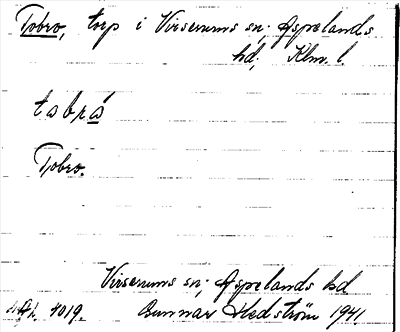 Tobro, torp i Virserums sn; Aspelands
hd, Klm. l.
tobrå
Tobro.
Virserums sn; Aspelands hd
4019. Gunnar Hedström 1941